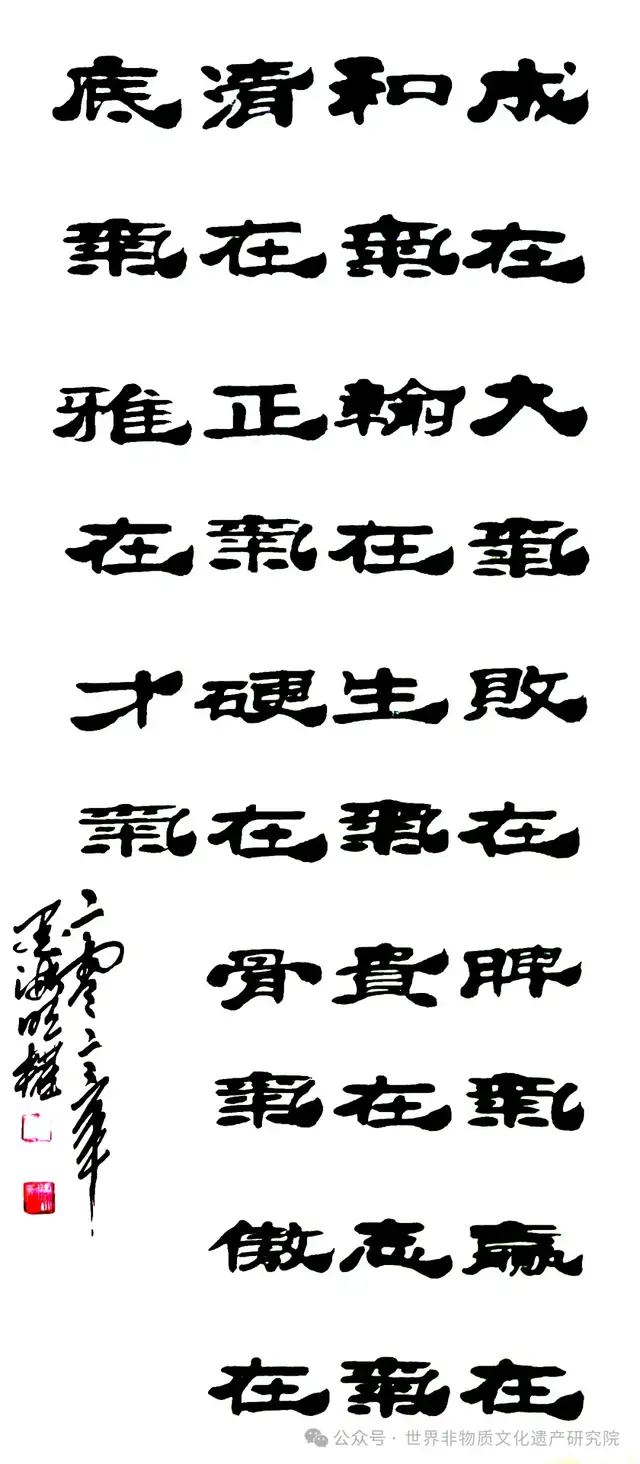 成在大氣敗在脾氣贏在
和氣輸在生氣貴在志氣
清在正氣硬在骨氣傲在
底氣雅在才氣
二零二三年
墨海
公众号 · 世界非物质文化遗产研究院